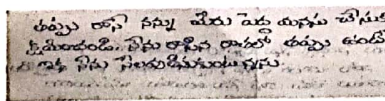 తప్పు రాసి నన్ను మీరు పెద్ద మనసు చేసుకు
క్షమించండి. నేను రాసిన దానిలో తప్పు ఉంటే
ఇక నేను సెలవుతీసుకుంటున్నాను.